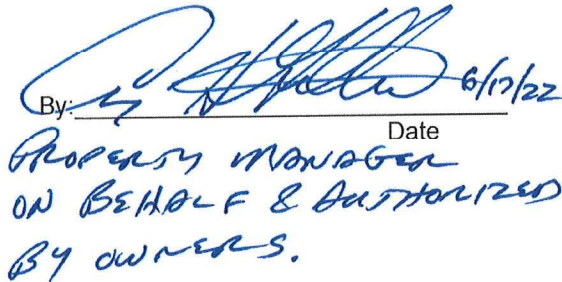 By: 6/17/22
Date
PROPERTY MANAGER
ON BEHALF & AUTHORIZED
BY OWNERS.